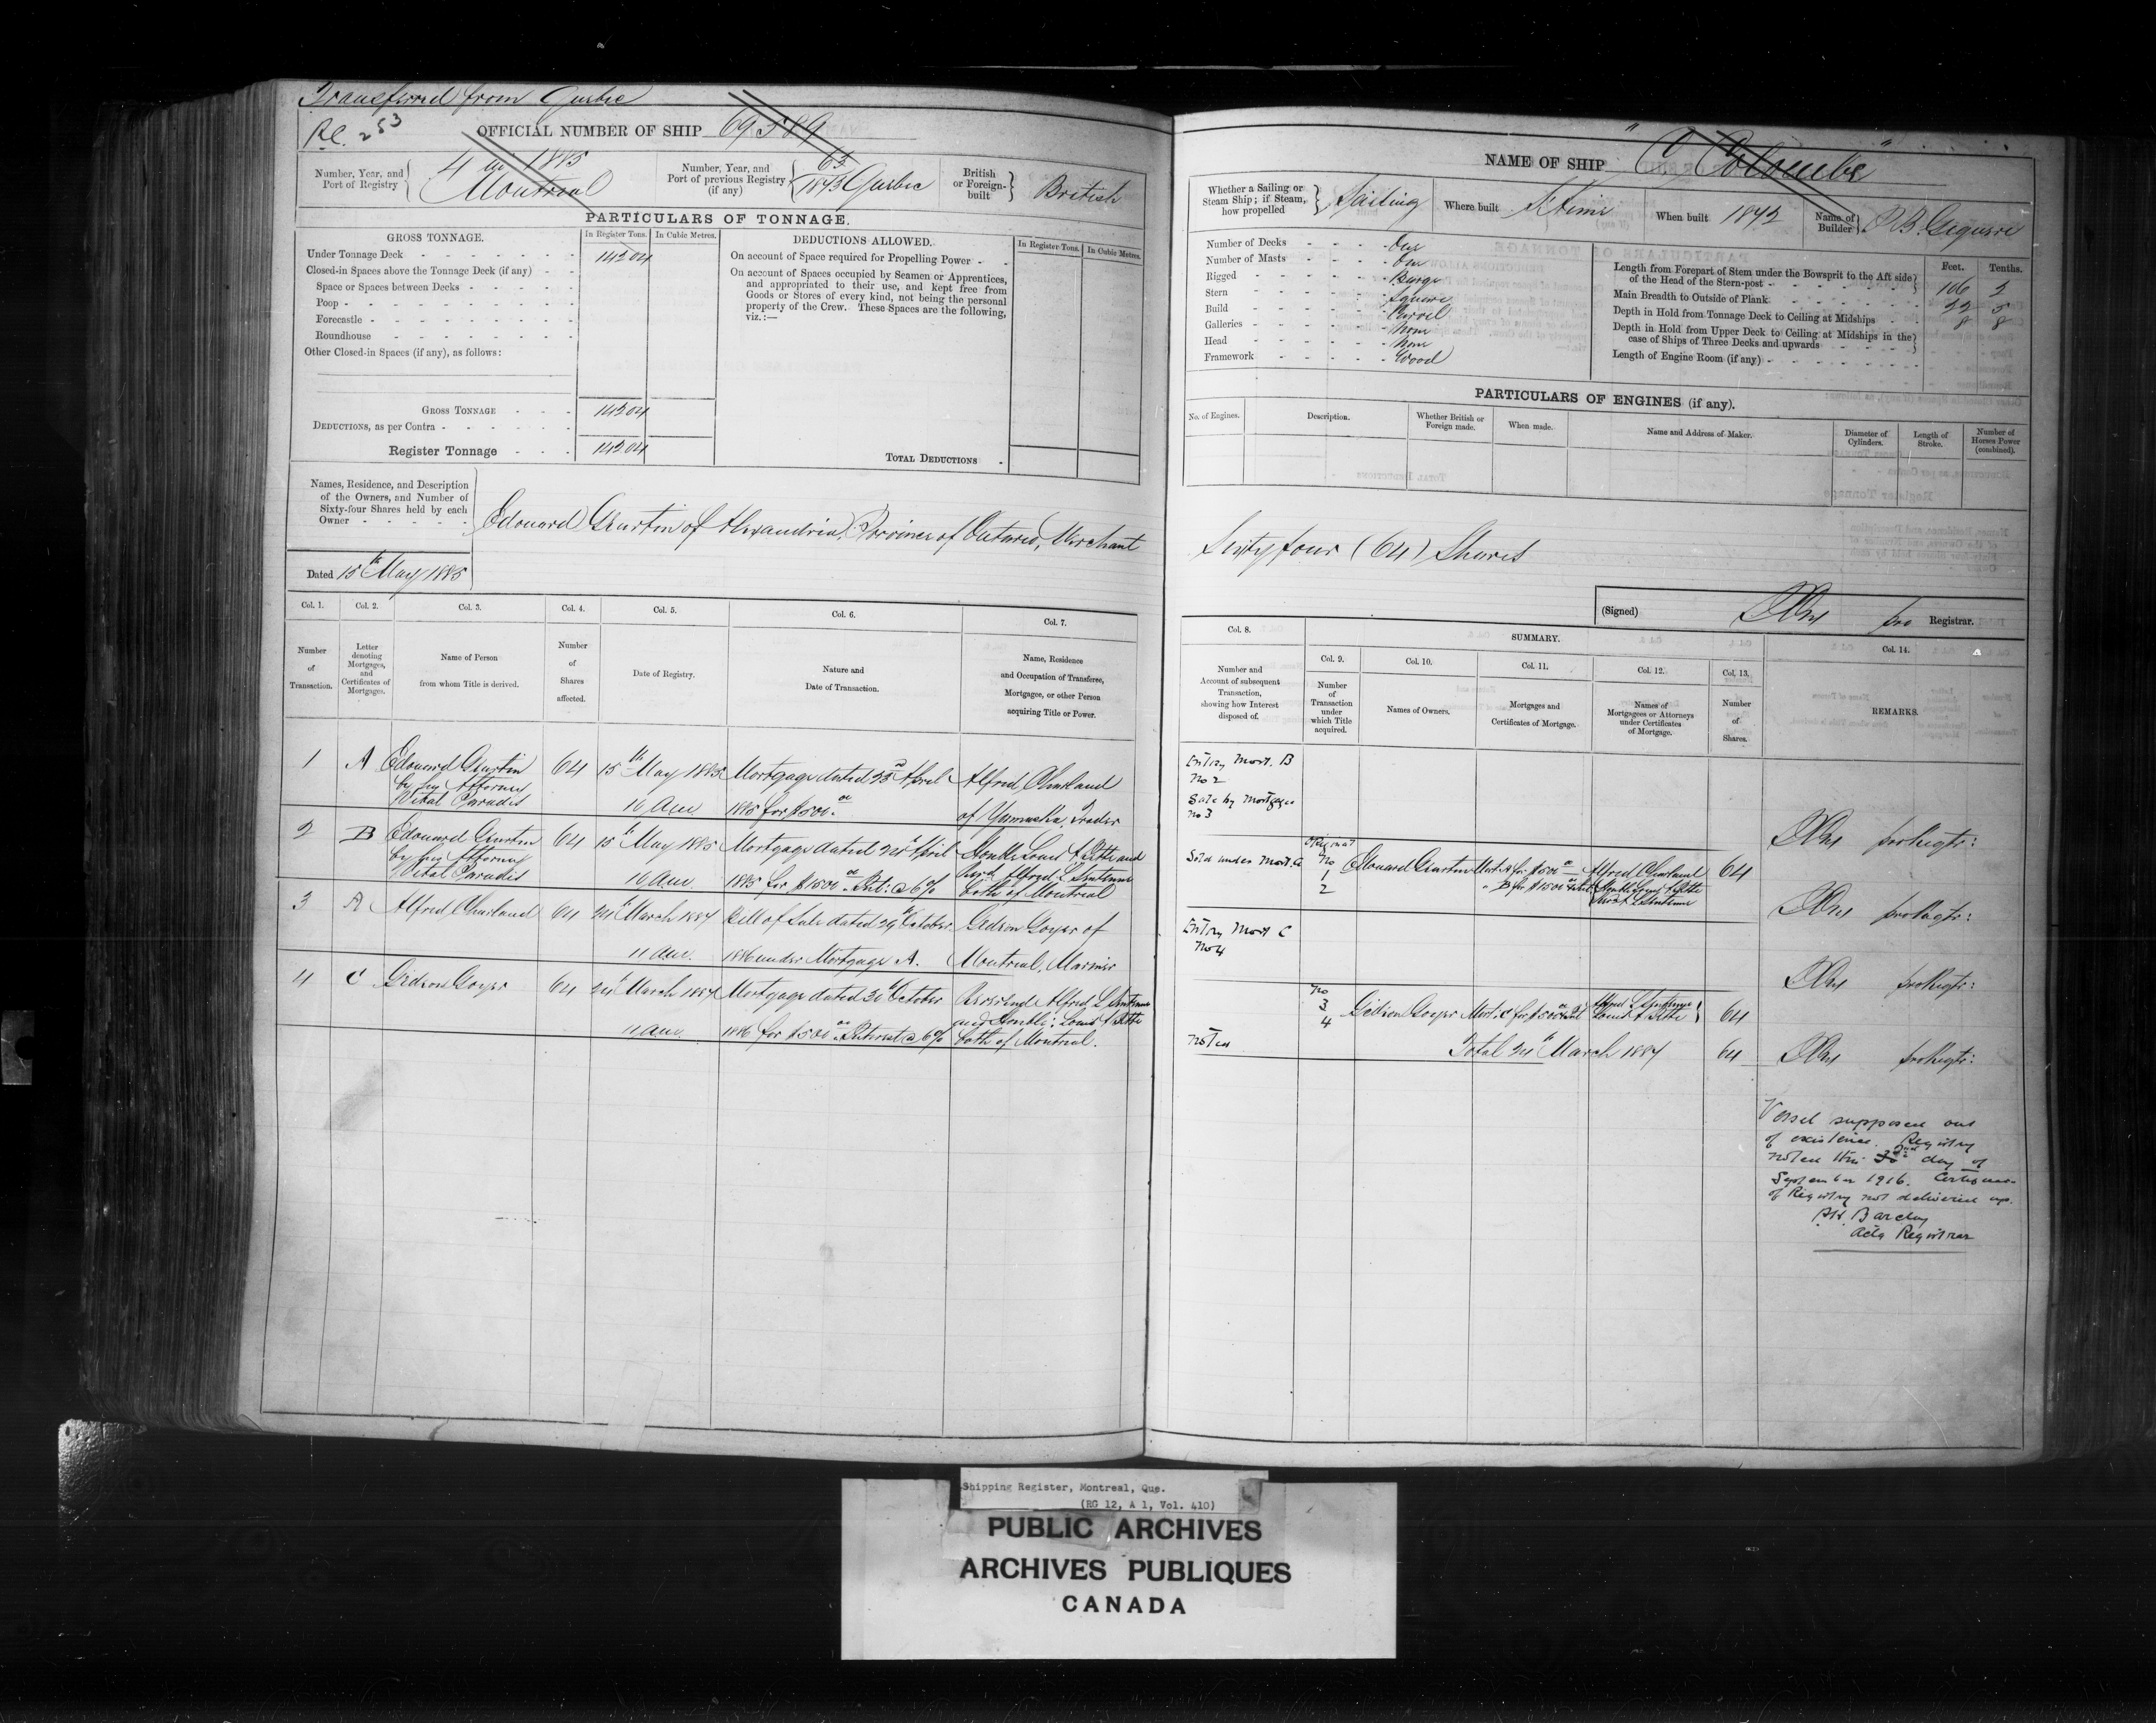 Transferred from Quebec
OFFICIAL NUMBER OF SHIP 69589
Number, Year, and Port of Registry
4 in 1885
Montreal
Number, Year, and Port of previous Registry (if any)
1873 Quebec
British or Foreign-built
British
PARTICULARS OF TONNAGE.
GROSS TONNAGE.
In Register Tons.
In Cubic Metres.
DEDUCTIONS ALLOWED.
In Register Tons.
In Cubic Metres.
Under Tonnage Deck
14204
Closed-in Spaces above the Tonnage Deck (if any)
Space or Spaces between Decks
Poop
Forecastle
Roundhouse
Other Closed-in Spaces (if any), as follows:
On account of Space required for Propelling Power
On account of Spaces occupied by Seamen or Apprentices,
and appropriated to their use, and kept free from
Goods or Stores of every kind, not being the personal
property of the Crew. These Spaces are the following,
viz.:—
GROSS TONNAGE
14204
DEDUCTIONS, as per Contra
Register Tonnage
14204
TOTAL DEDUCTIONS
Names, Residence, and Description
of the Owners, and Number of
Sixty-four Shares held by each
Owner
Edouard of Alexandria, Province of Ontario, Merchant
Dated 15th May 1885
Col. 1. Col. 2. Col. 3. Col. 4. Col. 5. Col. 6. Col. 7.
Number of Transaction.
Letter denoting Mortgages, and Certificates of Mortgages.
Name of Person from whom Title is derived.
Number of Shares affected.
Date of Registry.
Nature and Date of Transaction.
Name, Residence and Occupation of Transferee, Mortgagee, or other Person acquiring Title or Power.
1 A Edouard 64 15th May 1885 Mortgage dated 23d April Alfred Charland
by his Attorney
Vital Paradis 10 am 1885 for $500.00 of Yamaska, Trader
2 B Edouard 64 15th May 1885 Mortgage dated April
by his Attorney
Vital Paradis 10 am 1885 for $1500.00 Int: @ 6% both of Montreal
3 A Alfred Charland 64 24th March 1887 Bill of Sale dated 29th October Gedeon Goyer of
11 am. 1886 under Mortgage A. Montreal, Mariner
4 C Gedeon Goyer 64 24th March 1887 Mortgage dated 30th October Reverend Alfred
11 am. 1886 for $500.00 Interest @ 6% both of Montreal.
NAME OF SHIP " Colombe "
Whether a Sailing or Steam Ship; if Steam, how propelled
Sailing
Where built
When built 1872
Name of Builder
Number of Decks One
Number of Masts One
Rigged Barge
Stern Square
Build Carvel
Galleries None
Head None
Framework Wood
Feet. Tenths.
Length from Forepart of Stem under the Bowsprit to the Aft side of the Head of the Stern-post 106 2
Main Breadth to Outside of Plank 22 5
Depth in Hold from Tonnage Deck to Ceiling at Midships 8 8
Depth in Hold from Upper Deck to Ceiling at Midships in the case of Ships of Three Decks and upwards
Length of Engine Room (if any)
PARTICULARS OF ENGINES (if any).
No. of Engines.
Description.
Whether British or Foreign made.
When made.
Name and Address of Maker.
Diameter of Cylinders.
Length of Stroke.
Number of Horses Power (combined).
Sixty four (64) Shares
(Signed) pro Registrar.
Col. 8. SUMMARY. Col. 14.
Col. 9. Col. 10. Col. 11. Col. 12. Col. 13.
Number and Account of subsequent Transaction, showing how Interest disposed of.
Number of Transaction under which Title acquired.
Names of Owners.
Mortgages and Certificates of Mortgage.
Names of Mortgagees or Attorneys under Certificates of Mortgage.
Number of Shares.
REMARKS.
Entry Mort. B
No 2
Sale by Mortgagee
No 3
pro Regtr:
Sold under Mort. A
Original
No
1
2
Edouard
Mort: A for $500.00
Alfred Charland
64
B for $1500.00
pro Regtr:
Entry Mort C
No 4
pro Regtr:
No
3
4
Gedeon Goyer Mort: C for $500.00 64
Noted
Total 24th March 1887 64
pro Regtr:
Vessel supposed out
of existence. Registry
noted this day of
September 1916. Certificate
of Registry not delivered up.
Barclay
Actg Registrar
Shipping Register, Montreal, Que.
(RG 12, A 1, Vol. 410)
PUBLIC ARCHIVES
ARCHIVES PUBLIQUES
CANADA